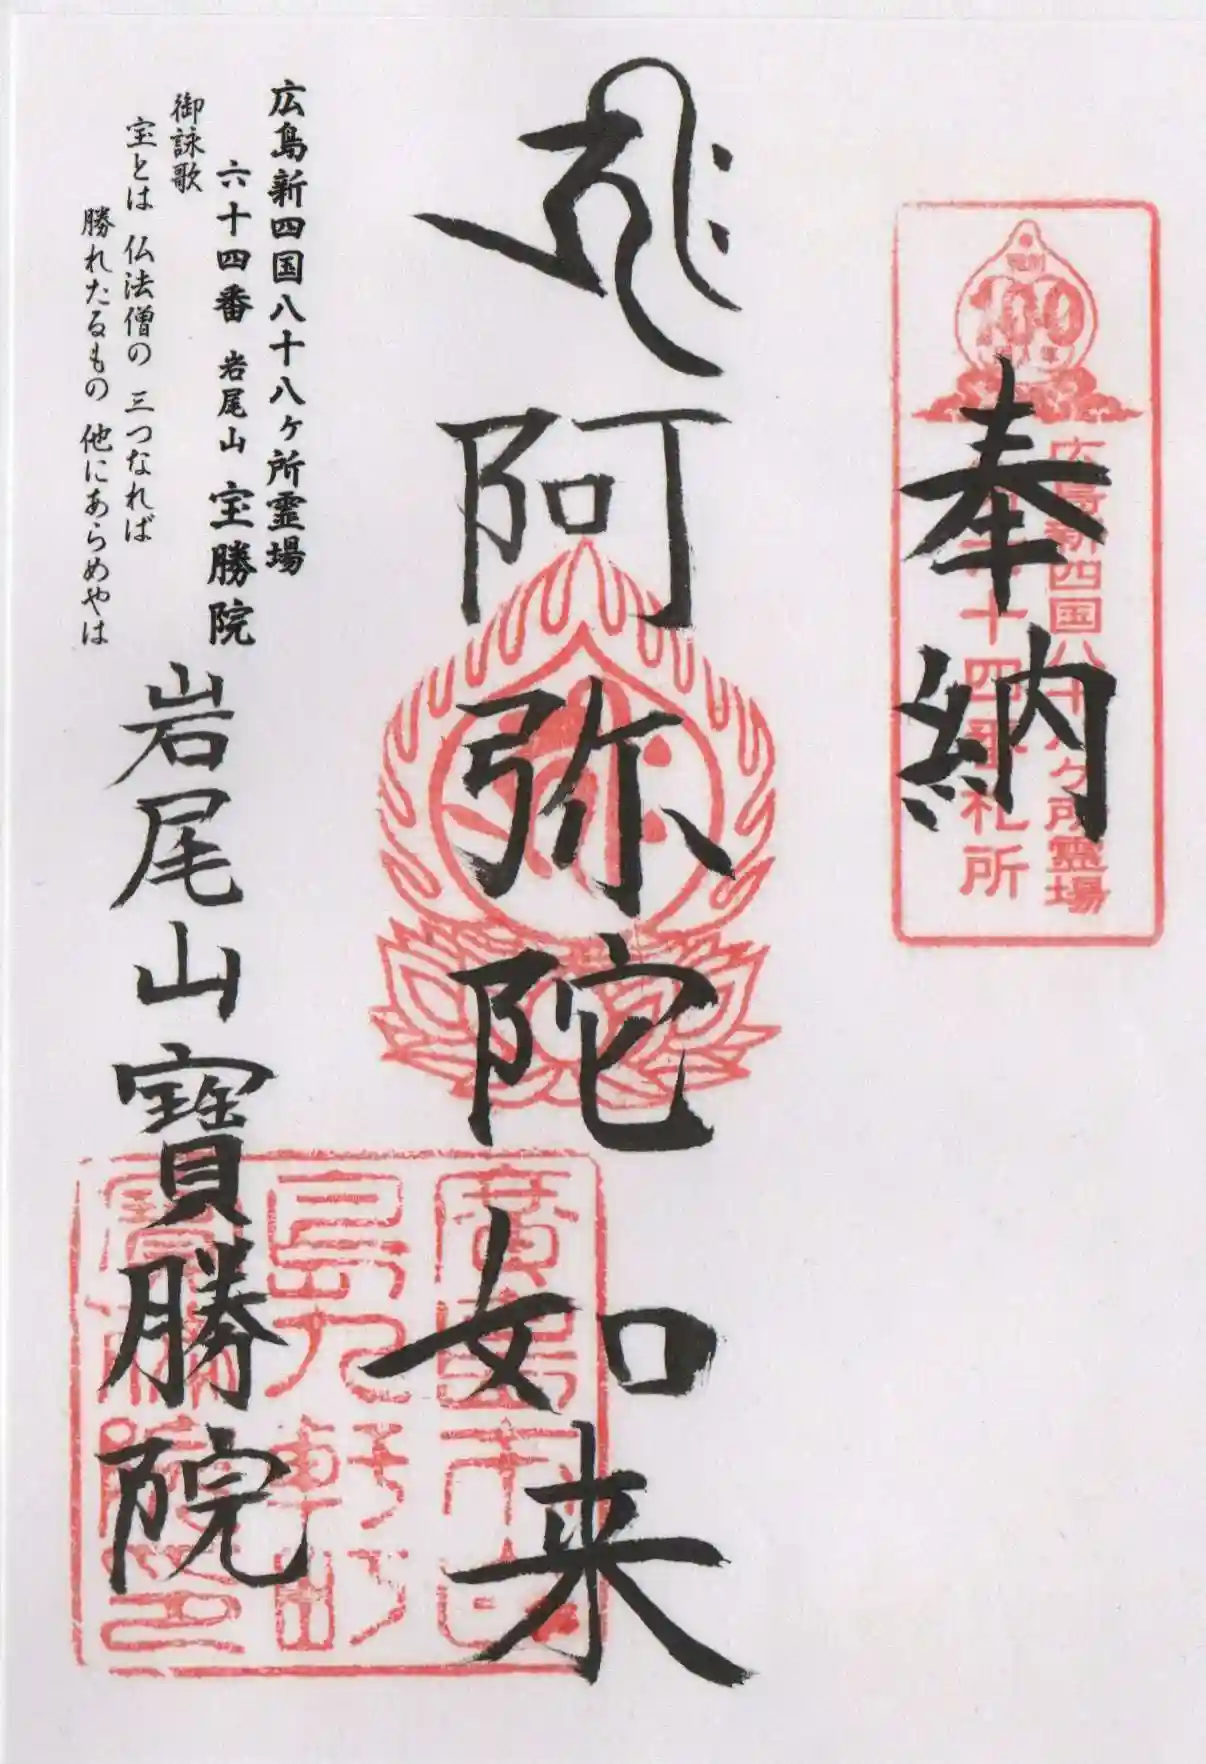 奉納
100
広島新四国八十八ヶ所霊場
十四番札所
阿弥陀如来
広島新四国八十八ヶ所霊場
六十四番 岩尾山 宝勝院
御詠歌
宝とは 仏法僧の 三つなれば
勝れたるもの 他にあらめやは
岩尾山寶勝院